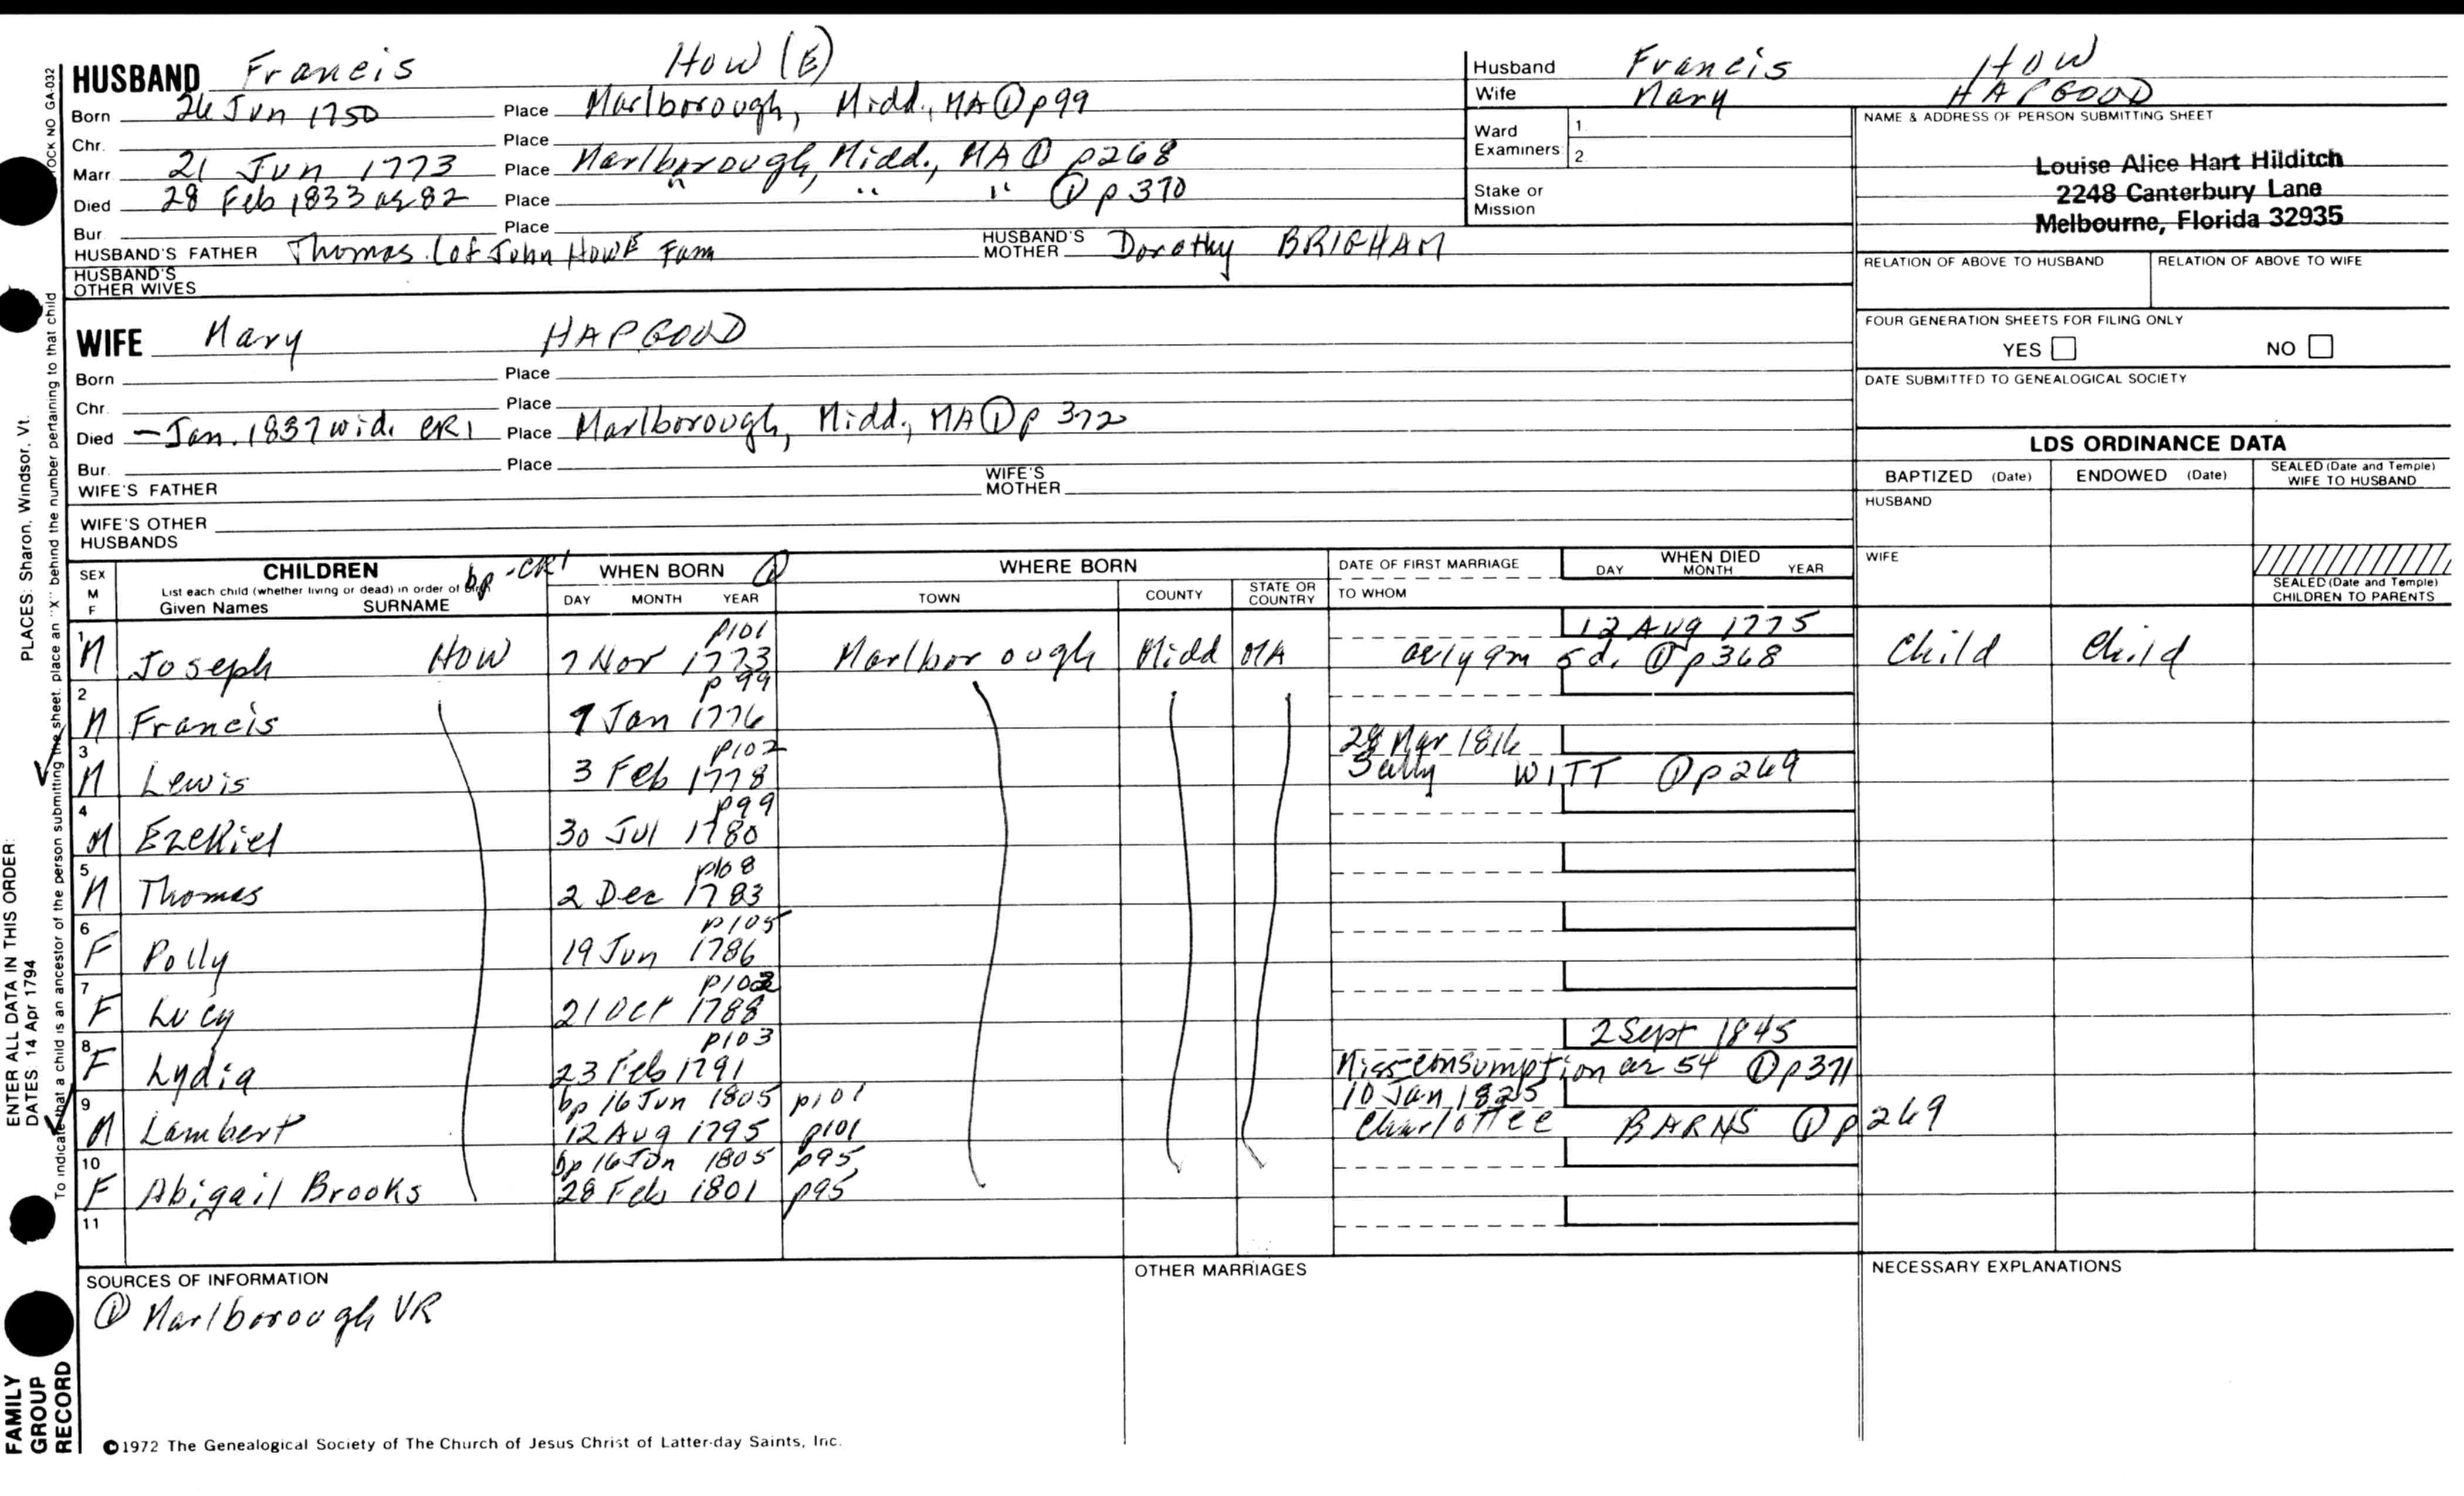 HUSBAND Francis How (E)
Born 26 Jun 1750 Place Marlborough, Midd., MA ① p99
Chr. Place
Marr. 21 Jun 1773 Place Marlborough, Midd., MA ① p268
Died 28 Feb 1833 ae 82 Place " " " ① p370
Bur. Place
HUSBAND'S FATHER Thomas (of John HOWE Fam HUSBAND'S MOTHER Dorothy BRIGHAM
HUSBAND'S OTHER WIVES
Husband Francis HOW
Wife Mary HAPGOOD
Ward Examiners 1. 2.
Stake or Mission
NAME & ADDRESS OF PERSON SUBMITTING SHEET
Louise Alice Hart Hilditch
2248 Canterbury Lane
Melbourne, Florida 32935
RELATION OF ABOVE TO HUSBAND RELATION OF ABOVE TO WIFE
FOUR GENERATION SHEETS FOR FILING ONLY
YES NO
DATE SUBMITTED TO GENEALOGICAL SOCIETY
WIFE Mary HAPGOOD
Born Place
Chr. Place
Died – Jan. 1837 wid. CR1 Place Marlborough, Midd., MA ① p 372
Bur. Place
WIFE'S FATHER WIFE'S MOTHER
WIFE'S OTHER HUSBANDS
LDS ORDINANCE DATA
BAPTIZED (Date) ENDOWED (Date) SEALED (Date and Temple) WIFE TO HUSBAND
HUSBAND
WIFE
SEALED (Date and Temple) CHILDREN TO PARENTS
SEX M F CHILDREN bp - CR1 WHEN BORN ① WHERE BORN DATE OF FIRST MARRIAGE WHEN DIED
List each child (whether living or dead) in order of birth
Given Names SURNAME DAY MONTH YEAR TOWN COUNTY STATE OR COUNTRY TO WHOM DAY MONTH YEAR
p101 12 Aug 1775
1 M Joseph HOW 7 Nov 1773 Marlborough Midd MA ae 1y 9m 5d. ① p368 Child Child
p 99
2 M Francis 9 Jan 1776
p102 28 Mar 1816
3 M Lewis 3 Feb 1778 Sally WITT ① p269
p99
4 M Ezekiel 30 Jul 1780
p108
5 M Thomas 2 Dec 1783
p105
6 F Polly 19 Jun 1786
p102
7 F Lucy 21 Oct 1788
p103 2 Sept 1845
8 F Lydia 23 Feb 1791 Miss consumption ae 54 ① p371
bp 16 Jun 1805 p101 10 Jan 1825
9 M Lambert 12 Aug 1795 p101 Charlottee BARNS ① p269
bp 16 Jun 1805 p95
10 F Abigail Brooks 28 Feb 1801 p95
11
SOURCES OF INFORMATION OTHER MARRIAGES NECESSARY EXPLANATIONS
① Marlborough VR
©1972 The Genealogical Society of The Church of Jesus Christ of Latter-day Saints, Inc.
FAMILY GROUP RECORD
ENTER ALL DATA IN THIS ORDER:
DATES 14 Apr 1794
PLACES: Sharon, Windsor, Vt.
To indicate that a child is an ancestor of the person submitting the sheet, place an "X" behind the number pertaining to that child
OCK NO GA-032